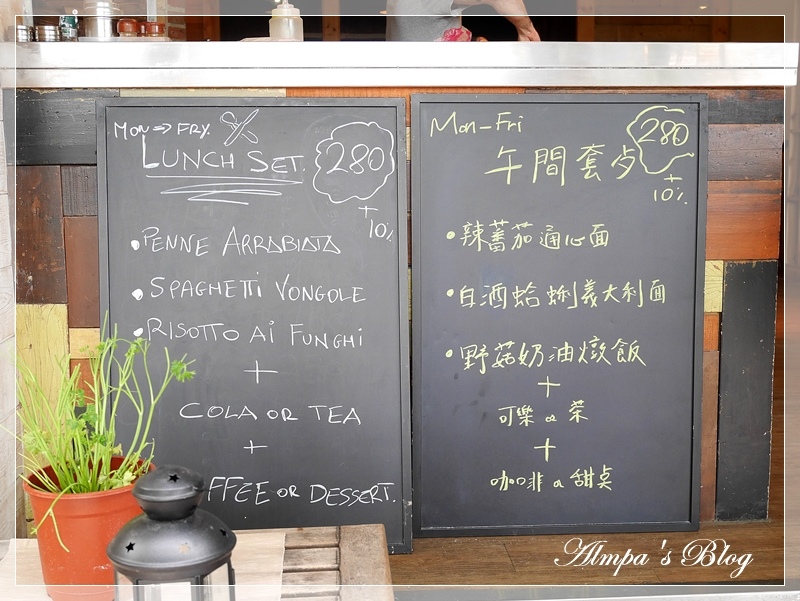 MON⇒FRY.
LUNCH SET.
280
+
10%
• PENNE ARRABIATA
• SPAGHETTI VONGOLE
• RISOTTO AI FUNGHI
+
COLA OR TEA
+
FFEE OR DESSERT.
Mon-Fri
280
+
10%
午間套歺
• 辣蕃茄通心面
• 白酒蛤蜊義大利面
• 野菇奶油燉飯
+
可樂 or 茶
+
咖啡 or 甜桌
Almpa's Blog